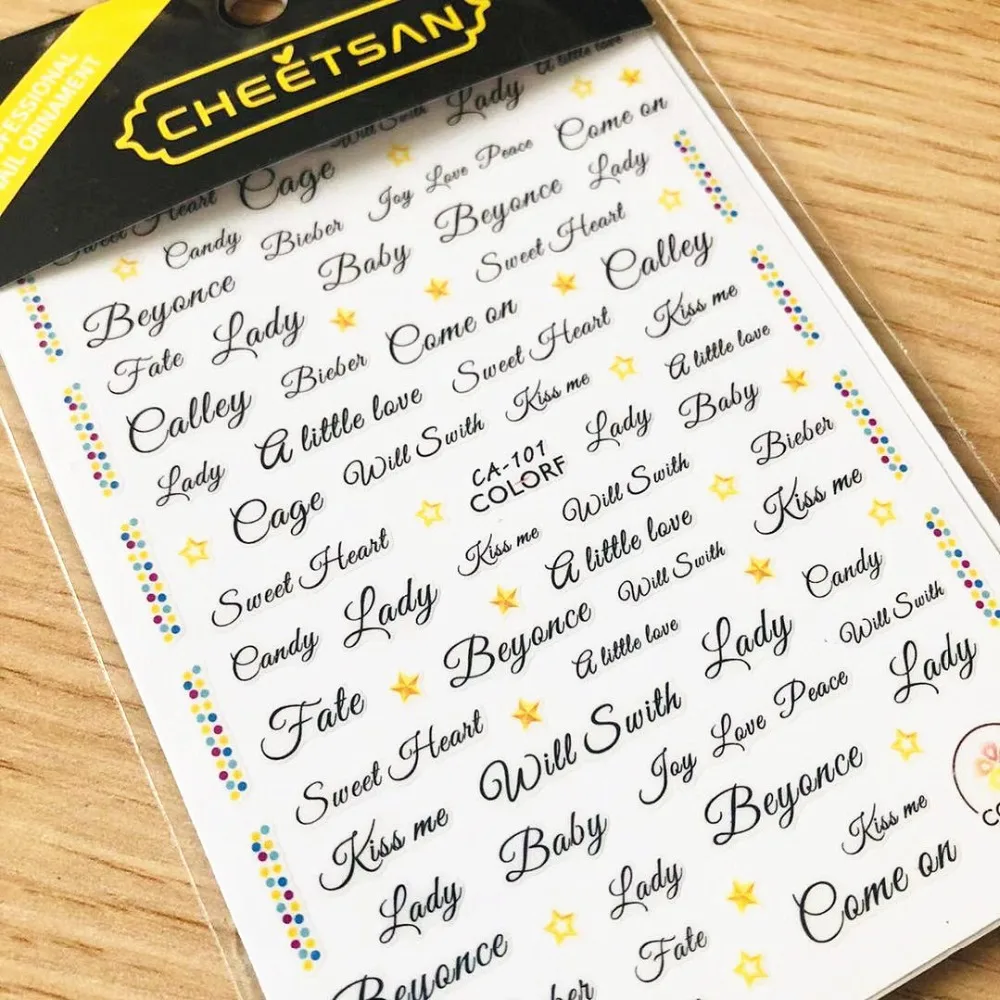 PROFESSIONAL
NAIL ORNAMENT
CHEETSAN
A little love
Will Swith Lady
Sweet Heart Cage Joy Love Peace Come on
Candy Bieber Beyonce Lady
Beyonce Baby Sweet Heart
Fate Lady Come on Calley
Calley Bieber Sweet Heart Kiss me
Lady A little love Kiss me A little love
Cage Will Swith CA-101 Lady Baby
COLORF
Sweet Heart Kiss me Will Swith Bieber
Candy Lady A little love Kiss me
Fate Beyonce Will Swith Candy
Sweet Heart A little love Lady Will Swith
Kiss me Will Swith Joy Love Peace Lady
Lady Baby Beyonce
Beyonce Lady Kiss me
Fate Come on